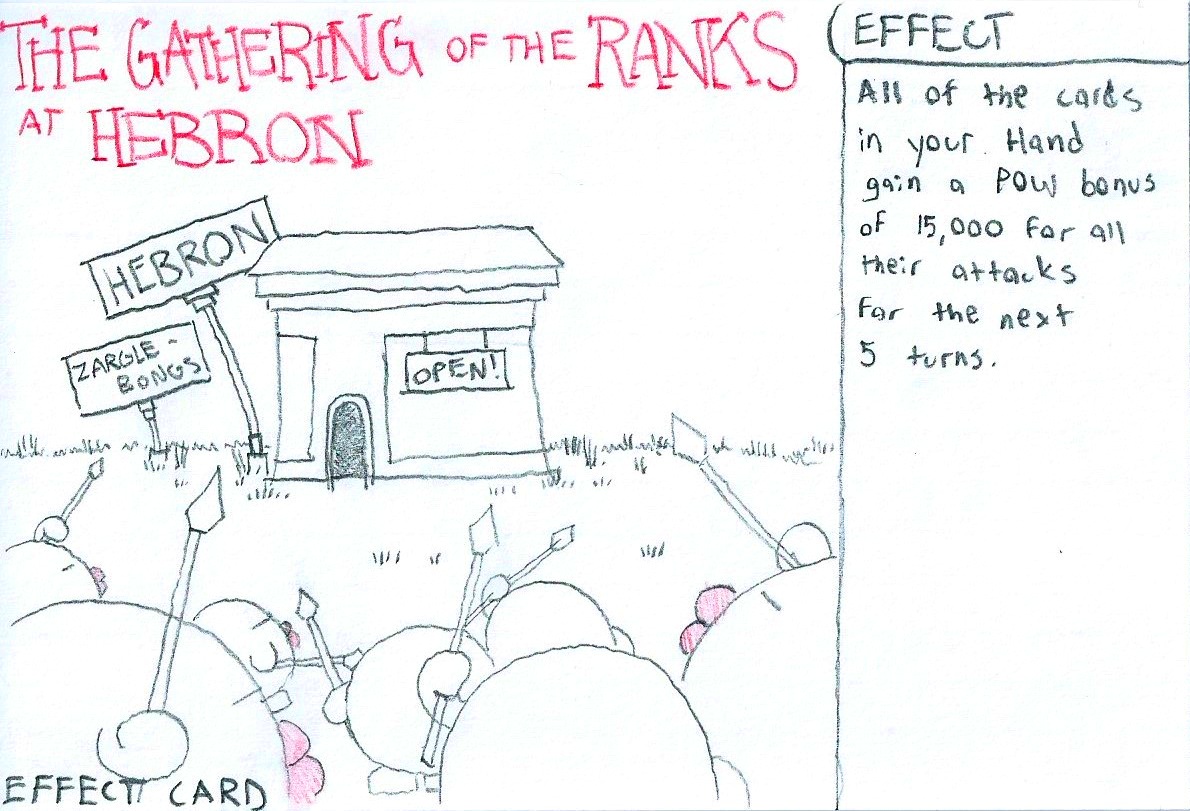 THE GATHERING OF THE RANKS
AT HEBRON
EFFECT
All of the cards
in your Hand
gain a POW bonus
of 15,000 for all
their attacks
for the next
5 turns.
HEBRON
ZARGLE-
BONGS
OPEN!
EFFECT CARD